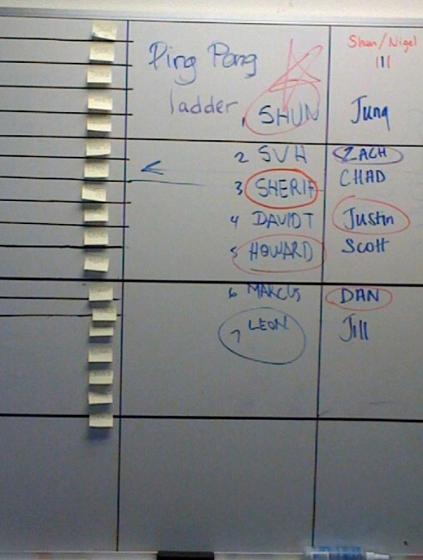 Ping Pong
ladder
1 SHUN
2 SVH
3 SHERIF
4 DAVIDT
5 HOWARD
6 MARCUS
7 LEON
Shun/Nigel
III
Jung
ZACH
CHAD
Justin
Scott
DAN
Jill